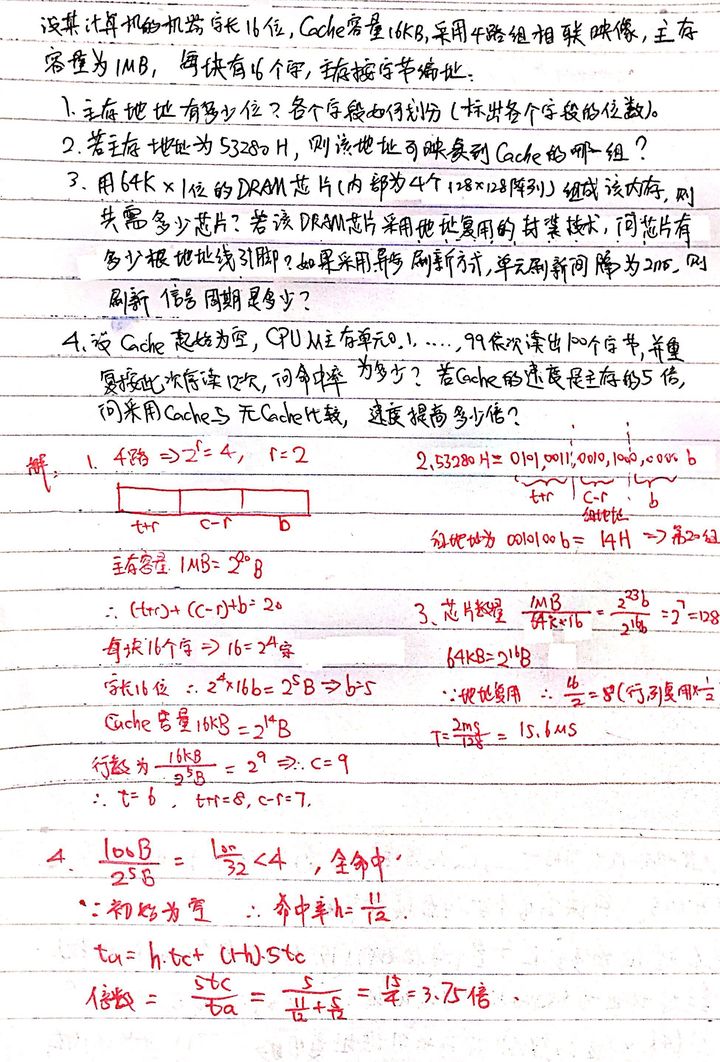 设某计算机的机器字长16位,Cache容量16KB,采用4路组相联映像,主存
容量为1MB, 每块有16个字,主存按字节编址.
1.主存地址有多少位?各个字段如何划分(标出各个字段的位数)。
2.若主存地址为53280H,则该地址可映象到Cache的哪一组?
3.用64K×1位的DRAM芯片(内部为4个128×128阵列)组成该内存,则
共需多少芯片?若该DRAM芯片采用地址复用的封装技术,问芯片有
多少根地址线引脚?如果采用异步刷新方式,单元刷新间隔为2ms,则
刷新信号周期是多少?
4.设Cache起始为空,CPU从主存单元0.1.….,99依次读出100个字节,并重
复按此次序读12次,问命中率为多少?若Cache的速度是主存的5倍,
问采用Cache与无Cache比较,速度提高多少倍?
解: 1. 4路⇒2^r=4, r=2
t+r c-r b
主存容量1MB=2^20B
∴(t+r)+(c-r)+b=20
每块16个字⇒16=2^4字
字长16位 ∴2^4×16b=2^5B⇒b=5
Cache容量16KB=2^14B
行数为 16KB/2^5B = 2^9 ⇒∴c=9
∴t=6, t+r=8, c-r=7.
2.53280H=0101,0011,0010,1000,0000b
t+r c-r b
组地址
组地址为0010100b=14H⇒第20组
3.芯片数量 1MB/64K×1b = 2^23b/2^16b = 2^7=128
64KB=2^16B
∵地址复用 ∴16/2=8(行列复用×1/2
T=2ms/128=15.6μs
4. 100B/2^5B = 100/32 <4 ,全命中.
∵初始为空 ∴命中率h=11/12.
ta=h·tc+(1-h)·5tc
倍数= 5tc/ta = 5/(11/12+5/12) = 15/4=3.75倍.